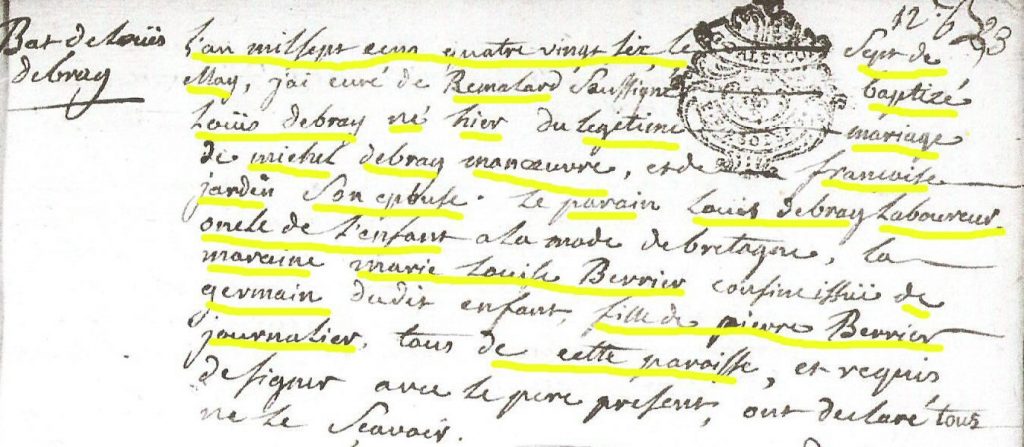 12e
23
Bat de Loüis
debray
L'an mil sept cens quatre vingt six le sept de
May, j'ai curé de Remalard soussigné baptizé
Loüis debray né hier du légétime mariage
de michel debray manœuvre, et de francoise
jardin son epouse. Le parain Loüis debray Laboureur
oncle de L'enfant a La mode de bretagne, la
maraine marie Louise Berrier cousine issüe de
germain dudit enfant, fille de pierre Berrier
journalier, tous de cette paroisse, et requis
de signer avec le pere présent, ont declaré tous
ne le sçavoir.
ALENCON